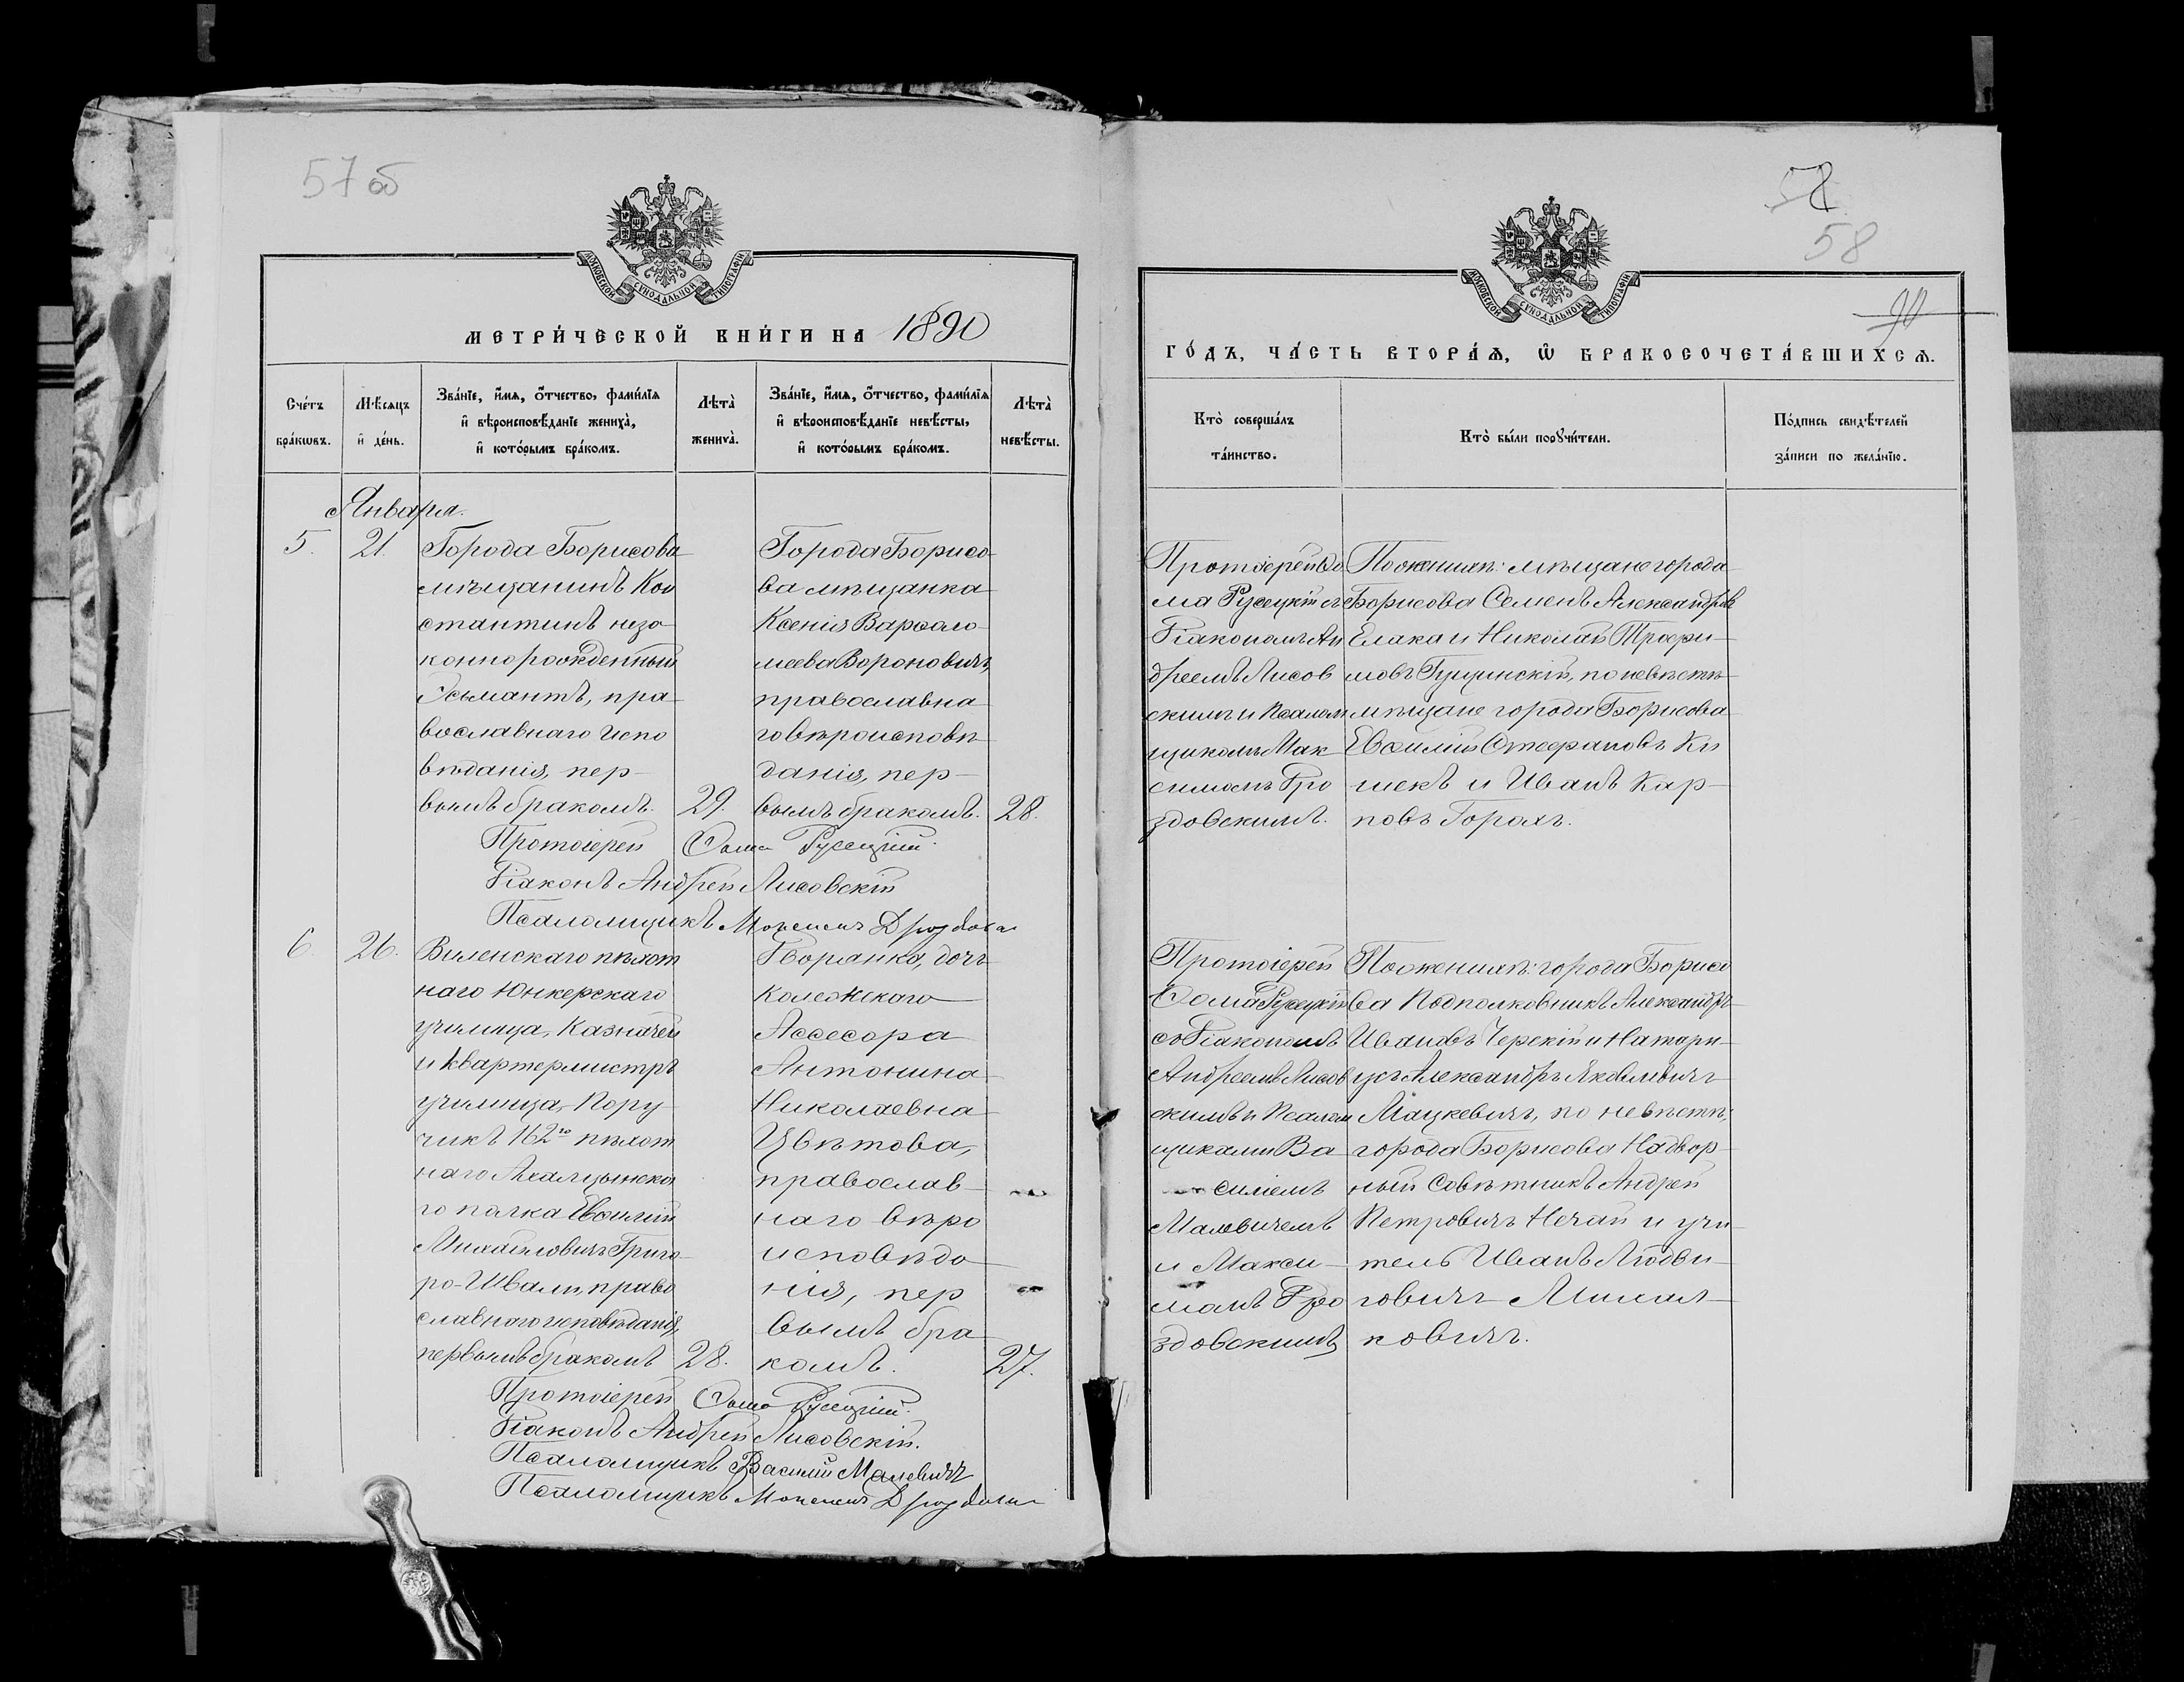 57 об
МОСКОВСКОЙ СѴНОДАЛЬНОЙ ТИПОГРАФІИ
МЕТРИ́ЧЕСКОЙ КНИ́ГИ НА 1890
Сче́тъ бра́кωвъ.
Мѣ́сяцъ и҆ де́нь.
Зва́нїе, и҆́мѧ, ѻ҆́тчество, фамн́лїѧ
и҆ вѣроисповѣ́данїе жениха̀,
и҆ кото́рымъ бра́комъ.
Лѣта̀ жениха̀.
Зва́нїе, и҆́мѧ, ѻ҆́тчество, фами́лїѧ
и҆ вѣроисповѣ́данїе невѣ́сты,
и҆ кото́рымъ бра́комъ.
Лѣта̀ невѣ́сты.
Января.
5. 21.
Города Борисова
мѣщанинъ Кон
стантинъ незо
коннорожденный
Эсьмантъ, пра
вославнаго испо
вѣданія, пер-
вымъ бракомъ. 29.
Города Борисо
ва мѣщанка
Ксенія Варѳоло
меева Вороновичъ,
православна
го вѣроисповѣ
данія, пер-
вымъ бракомъ. 28.
Протоіерей Ѳома Русецкій.
Діаконъ Андрей Лисовскій
Псаломщикъ
6. 26.
Виленскаго пѣхот
наго Юнкерскаго
училища, Казначей
и квартермистръ
училища, Пору
чикъ 162го пѣхот
наго Ахалцынска
го полка Евѳимій
Михайловичъ Григо
ро-Швали, право
славнаго исповѣданія,
первымъ бракомъ 28.
Дворянка, дочь
Колежскаго
Ассесора
Антонина
Николаевна
Цвѣтова,
православ
наго вѣро
исповѣда
нія, пер
вымъ бра
комъ. 27.
Протоіерей Ѳома Русецкій.
Діаконъ Андрей Лисовскій.
Псаломщикъ Василій Малевичъ
Псаломщикъ
58
58
90
МОСКОВСКОЙ СѴНОДАЛЬНОЙ ТИПОГРАФІИ
ГО́ДЪ, ЧА́СТЬ ВТОРА́Ѧ, Ѡ҆ БРАКОСОЧЕТА́ВШИХСѦ.
Кто̀ соверша́лъ
та́инство.
Кто̀ бы́ли порꙋчи́тели.
По́дпись свидѣ́телей
за́писи по жела́нїю.
Протоіерей Ѳо
ма Русецкій съ
Діакономъ Ан
дреемъ Лисов
скимъ и Псалом
щикомъ Мак
симомъ Дро
здовскимъ.
По женихѣ: мѣщане города
Борисова Семенъ Александровъ
Елака и Николай Трофи-
мовъ Гущинскій, по невѣстѣ
мѣщане города Борисова
Евѳимій Стефановъ Ки
шекъ и Иванъ Кар-
повъ Горохъ.
Протоіерей
Ѳома Русецкій
съ Діакономъ
Андреемъ Лисов
скимъ и Псалом
щиками Ва
силіемъ
Малевичемъ
и Макси-
момъ Дро
здовскимъ
По женихѣ: города Борисо
ва Подполковникъ Александръ
Ивановъ Черскій и Натари-
усъ Александръ Яковлевичъ
Мацкевичъ, по невѣстѣ;
города Борисова Надвор-
ный Совѣтникъ Андрей
Петровичъ Нечай и учи-
тель Иванъ Людви-
говичъ Михал-
ковичъ.